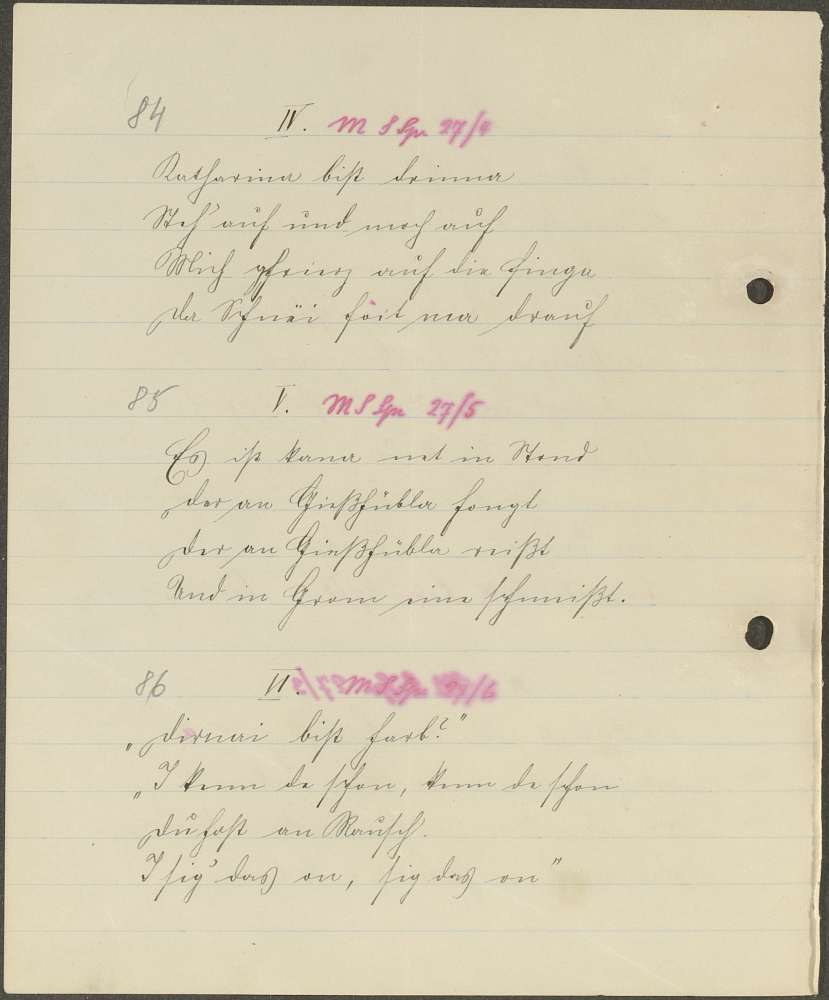 84 IV. M S Spr 27/4
Katharina bist drinna
Steh' auf und moch auf
Mich gfrierz auf die Finga
da Schnëi foit ma drauf
85 V. M S Spr 27/5
Es ist kana net in Stond
der an Gießhübla fongt
der an Gießhübla reißt
Und in Grom eine schmeißt.
86 VI. M S Spr 27/6
„Dirnai bist harb?"
„I kenn da schon, kenn da schon
Du host an Rausch.
I sig' das on, sig das on"